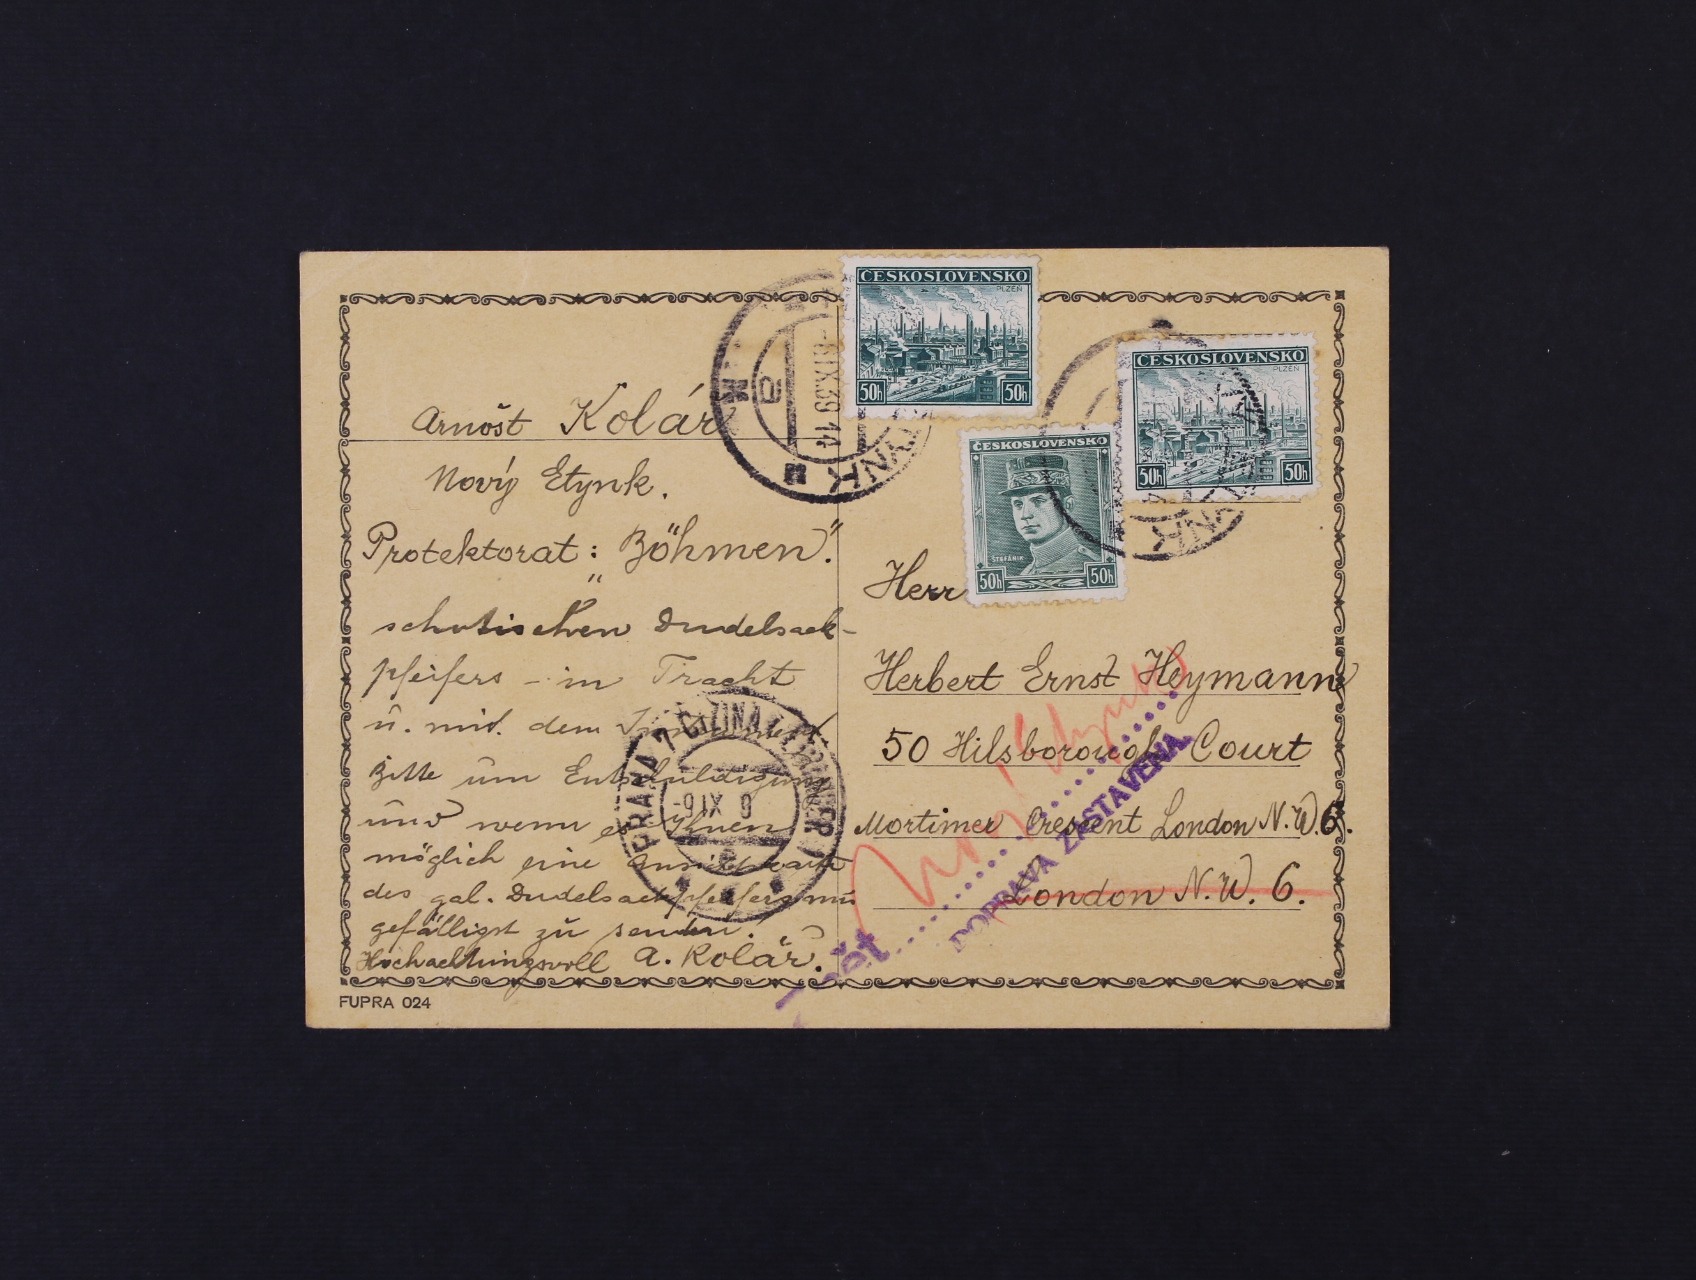 ČESKOSLOVENSKO
PLZEŇ
50h 50h
ČESKOSLOVENSKO
PLZEŇ
50h 50h
ČESKOSLOVENSKO
ŠTEFÁNIK
50h 50h
-8.IX.39.14
TYNK
Arnošt Kolář
Nový Etynk.
Protektorat: "Böhmen".
schotischen Dudelsack-
pfeifers - in Tracht
u. mit dem
Bitte um Entschuldigung
und wenn es Ihnen
möglich eine Ansichtskarte
des gal. Dudelsackpfeifers mir
gefälligst zu senden.
Hochachtungsvoll A. Kolář.
FUPRA 024
PRAHA 7 CIZINA
-9.IX
Herr
Herbert Ernst Heymann
50 Hilsborough Court
Mortimer Crescent London N.W.6.
London N.W.6.
Zpět
DOPRAVA ZASTAVENA.